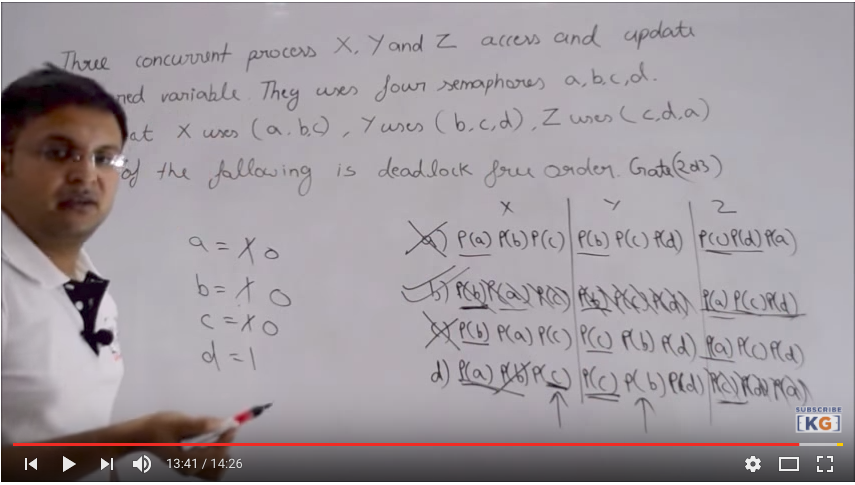 Three concurrent process X, Y and Z access and update
red variable. They uses four semaphores a,b,c,d.
at X uses (a,b,c), Y uses (b,c,d), Z uses (c,d,a)
of the following is deadlock free order. Gate(2013)
X Y Z
a) P(a) P(b) P(c) P(b) P(c) P(d) P(c) P(d) P(a)
b) P(b) P(a) P(c) P(b) P(c) P(d) P(a) P(c) P(d)
c) P(b) P(a) P(c) P(c) P(b) P(d) P(a) P(c) P(d)
d) P(a) P(b) P(c) P(c) P(b) P(d) P(c) P(d) P(a)
a = 1 0
b = 1 0
c = 1 0
d = 1
SUBSCRIBE
[KG]
13:41 / 14:26